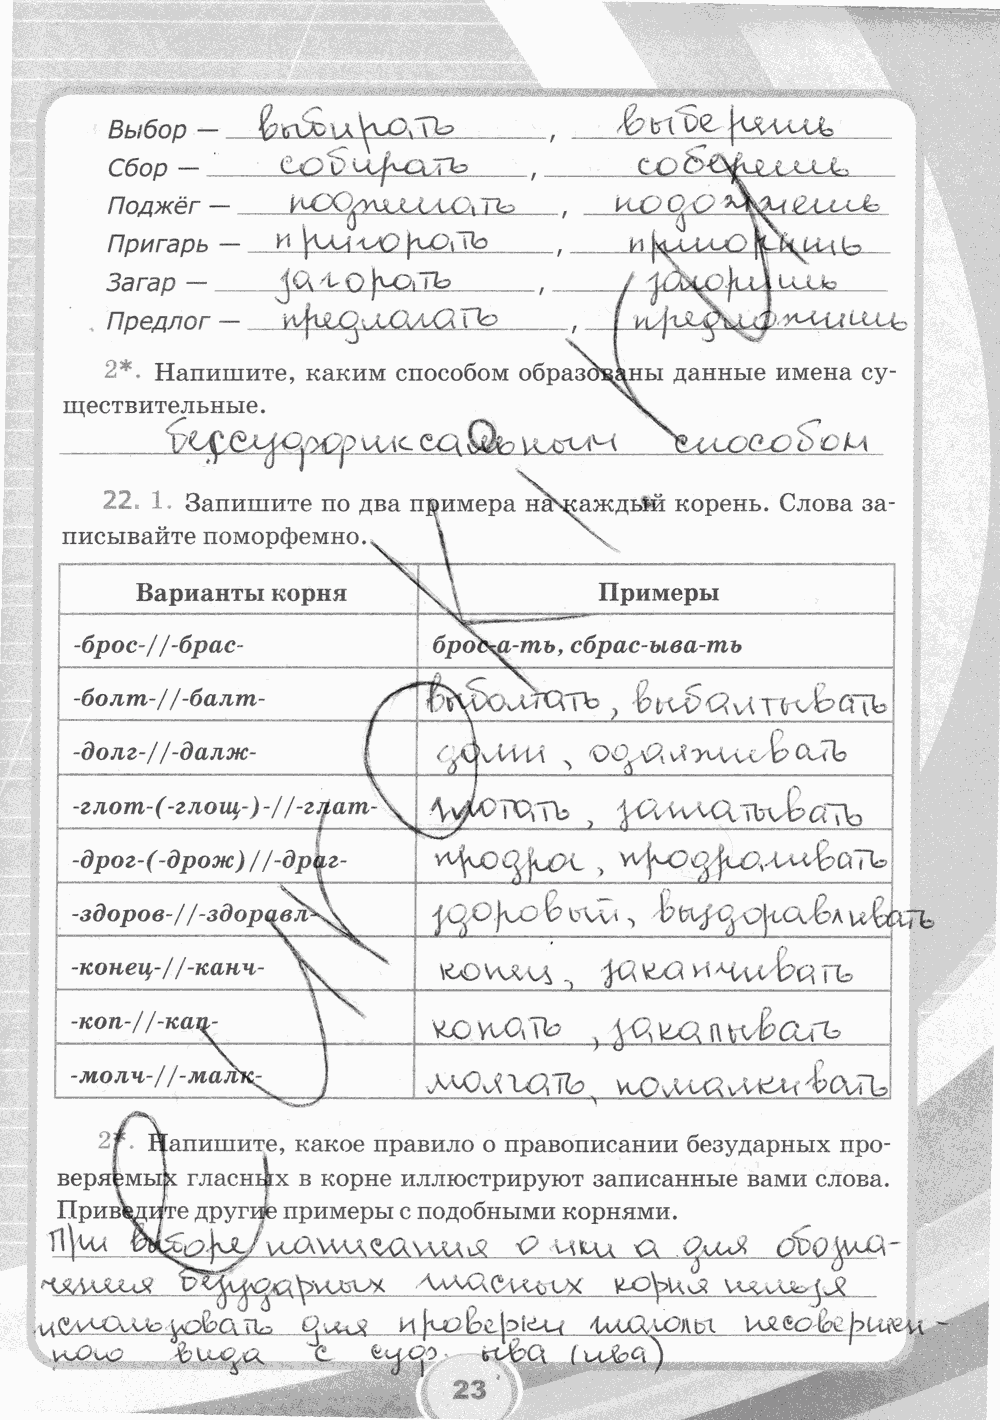 Выбор — выбирать, выберешь
Сбор — собирать, соберешь
Поджёг — поджигать, подожжешь
Пригарь — пригорать, пригоришь
Загар — загорать, загоришь
Предлог — предлагать, предложишь
2*. Напишите, каким способом образованы данные имена су-
ществительные.
бессуффиксальным способом
22. 1. Запишите по два примера на каждый корень. Слова за-
писывайте поморфемно.
Варианты корня Примеры
-брос-//-брас- брос-а-ть, сбрас-ыва-ть
-болт-//-балт- выболтать, выбалтывать
-долг-//-далж- долги, одалживать
-глот-(-глощ-)-//-глат- глотать, заглатывать
-дрог-(-дрож)//-драг- продрог, продрагивать
-здоров-//-здоравл- здоровый, выздоравливать
-конец-//-канч- конец, заканчивать
-коп-//-кап- копать, закапывать
-молч-//-малк- молчать, помалкивать
2*. Напишите, какое правило о правописании безударных про-
веряемых гласных в корне иллюстрируют записанные вами слова.
Приведите другие примеры с подобными корнями.
При выборе написания о или а для обозна-
чения безударных гласных корня нельзя
использовать для проверки глаголы несовершен-
ного вида с суф. ыва (ива)
23